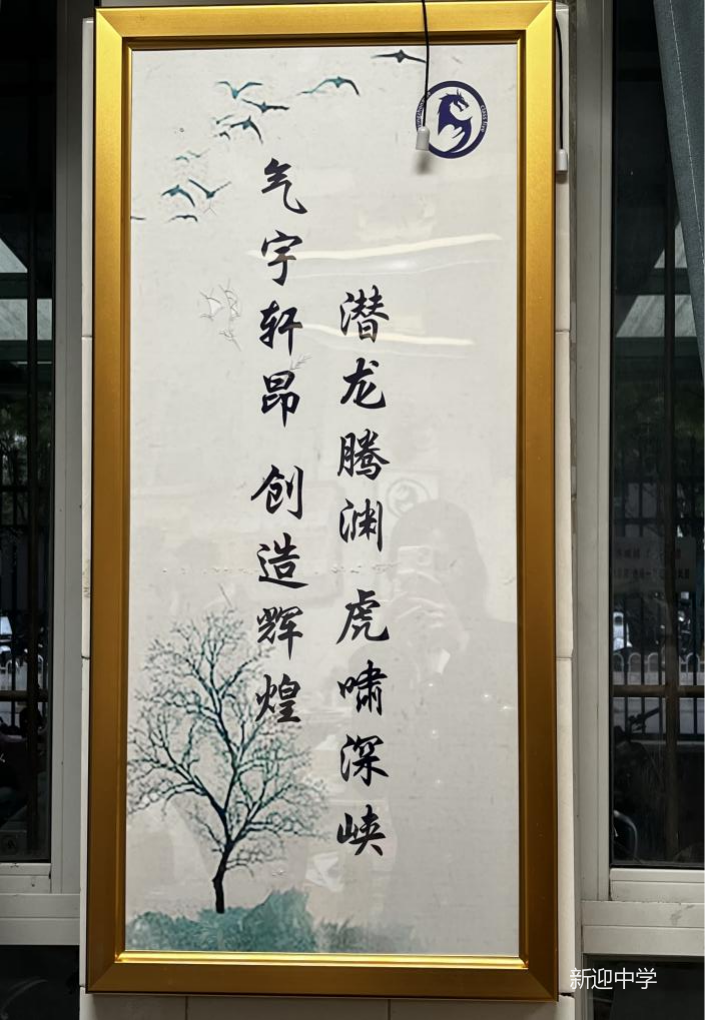 潜龙腾渊 虎啸深峡
气宇轩昂 创造辉煌
新迎中学